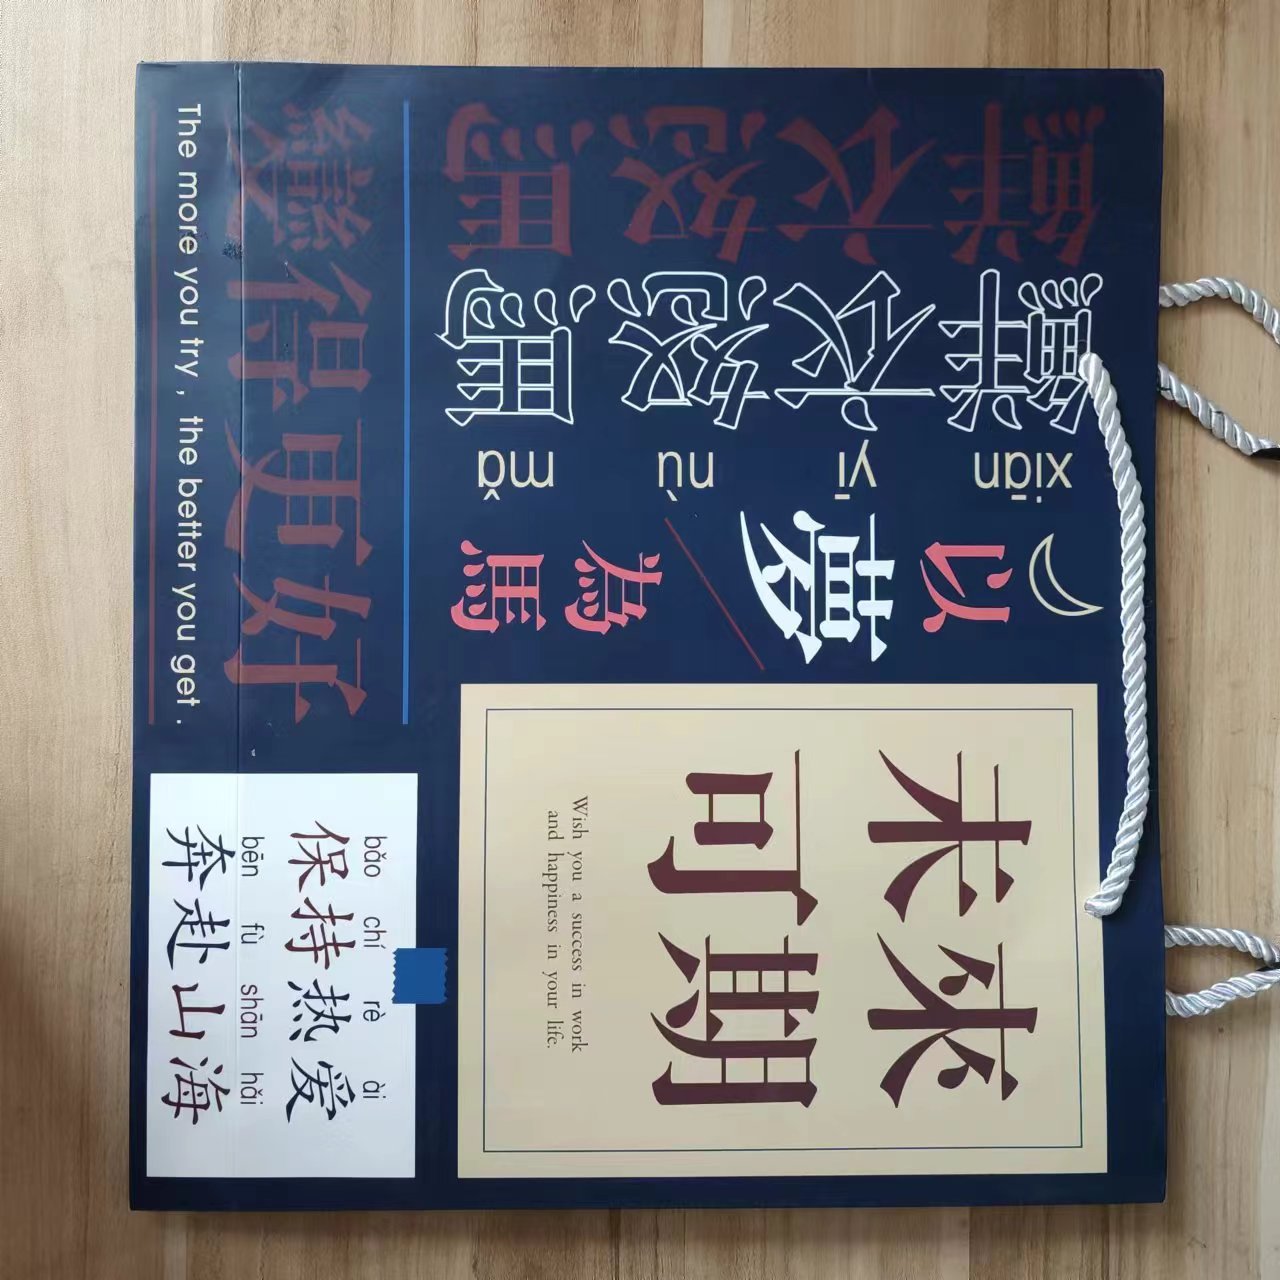 鮮衣怒馬
鮮衣怒馬
xiān yī nù mǎ
以夢
為馬
未來
可期
Wish you a success in work
and happiness in your life.
變得更好
The more you try , the better you get .
bǎo chí rè ài
保持热爱
bēn fù shān hǎi
奔赴山海